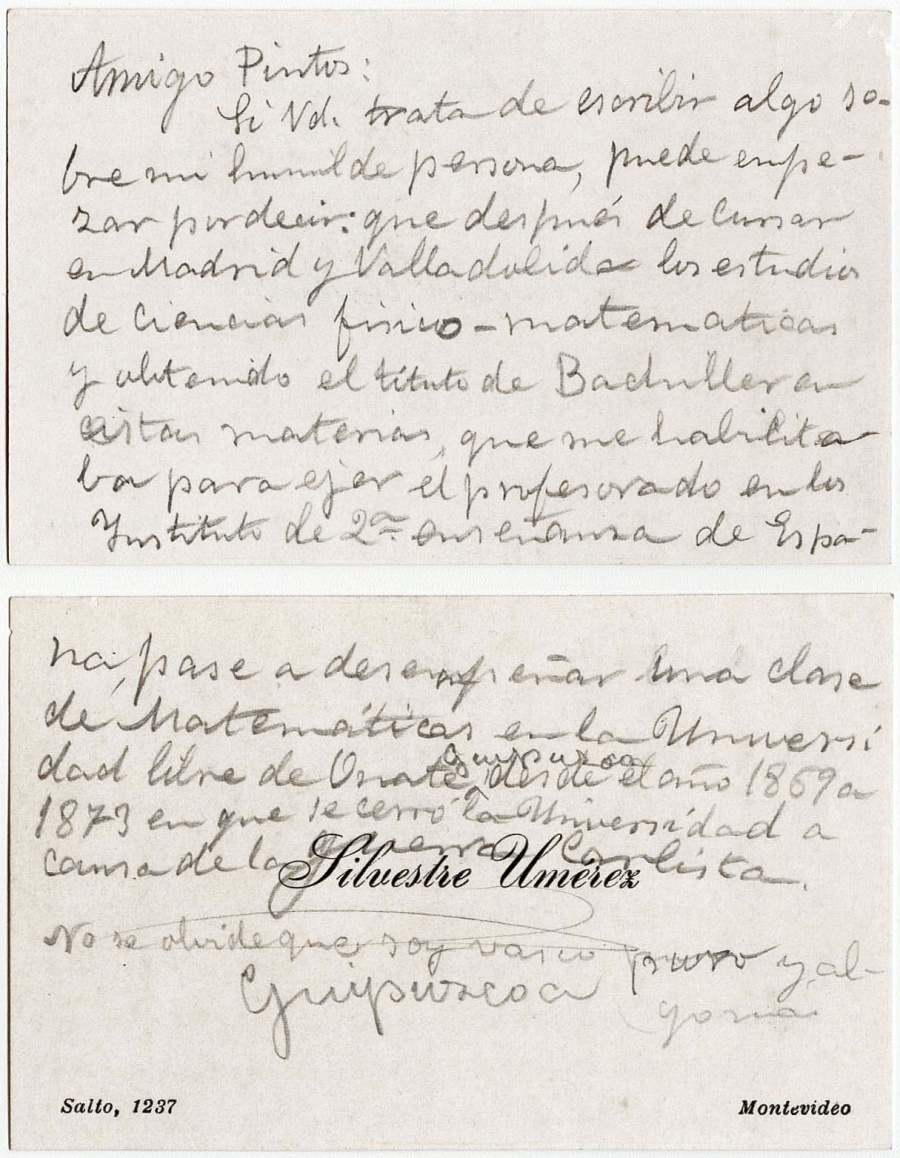 Amigo Pintos:
Si Vd. trata de escribir algo so-
bre mi humilde persona, puede empe-
zar por decir: que después de cursar
en Madrid y Valladolid los estudios
de Ciencias fisico-matematicas
y obtenido el título de Bachiller en
estas materias, que me habilita-
ba para ejer el profesorado en los
Instituto de 2ª enseñansa de Espa-
ña, pase a desempeñar una clase
de Matemáticas en la Universi
dad libre de Oñate, Guipuzcoa desde el año 1869 a
1873 en que se cerró la Universidad a
causa de la guerra Carlista.
Silvestre Umérez
No se olvide que soy vasco puro y al-
Guipuzcoa
Salto, 1237
Montevideo